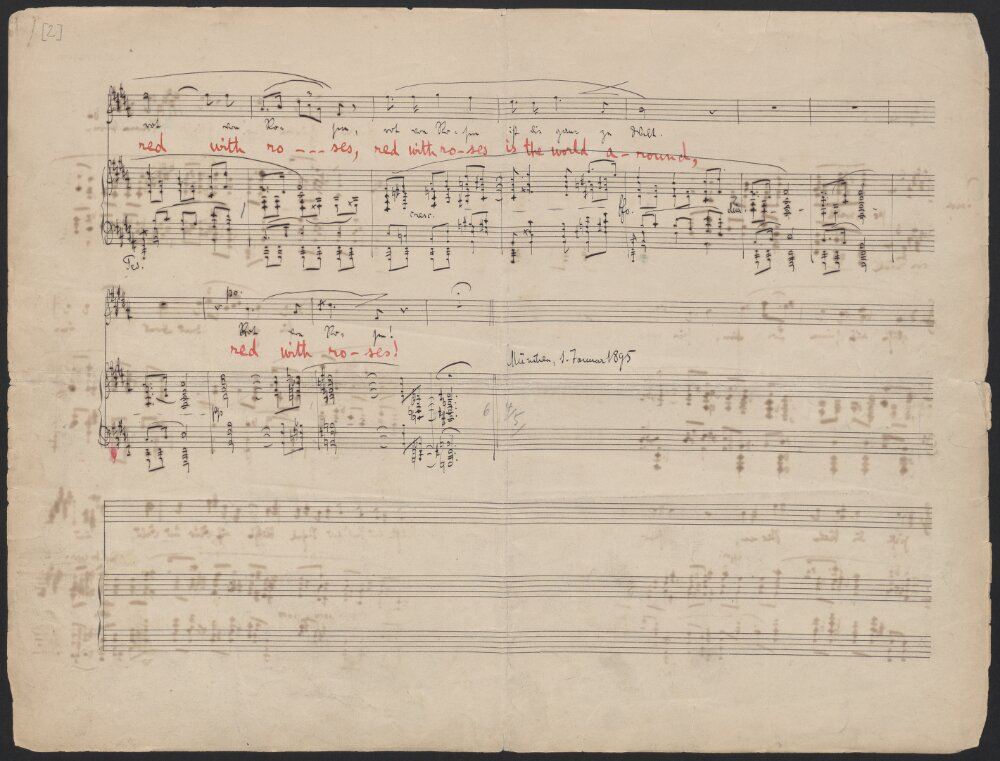 [2]
rot von Ro- sen, rot von Ro-sen ist die ganze Welt.
red with ro---ses, red with ro-ses is the world a-round,
cresc.
Ped.
pp.
Rot von Ro- sen!
red with ro-ses!
München, 1. Januar 1895
pp.
6 4/5